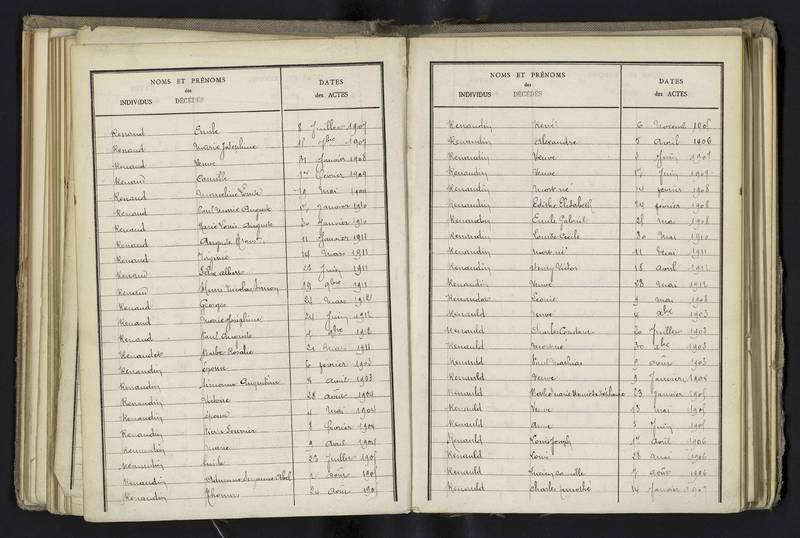 NOMS ET PRÉNOMS
des
INDIVIDUS DÉCÉDÉS
DATES
des ACTES
Renaud Emile 8 Juillet 1907
Renaud Marie Joséphine 7bre 1907
Renaud Veuve 31 Janvier 1908
Renaud Camille 1er février 1909
Renaud Marceline Louise 19 Mai
Renaud Paul Marie Auguste Janvier 1910
Renaud Marie Louis Auguste 20 Janvier 1910
Renaud Auguste 11 Janvier 1911
Renaud Virginie 14 Mars 1911
Renaud 23 Juin 1911
Renaud Henri Nicolas Simon 19 9bre 1911
Renaud Georges 22 Mars 1912
Renaud Marie Joséphine 24 Juin 1912
Renaud Paul Auguste 9bre 1912
Renaudet Barbe Rosalie 21 Mars 1911
Renaudin Epoux 6 février 1903
Renaudin Augustine 8 Avril 1903
Renaudin Victoire 28 Août 1904
Renaudin Epoux 4 Mai 1904
Renaudin 8 février 1904
Renaudin Marie 9 Avril 1905
Renaudin Emile 23 Juillet 1905
Renaudin Abel 2 Août 1905
Renaudin 24 Août 190
NOMS ET PRÉNOMS
des
INDIVIDUS DÉCÉDÉS
DATES
des ACTES
Renaudin René 6 Novemb 1905
Renaudin Alexandre 5 Avril 1906
Renaudin Veuve 3 Juin 1907
Renaudin Veuve 17 Juin 1907
Renaudin Mort né 14 février 1908
Renaudin Edithe Elisabeth 24 février 1908
Renaudin Emile Gabriel 21 Mai 1908
Renaudin Lucile Cécile 30 Mai 1910
Renaudin Mort né 11 Mai 1911
Renaudin Henry Victor 18 Avril 1912
Renaudin Veuve 23 Mai 1912
Renaudot Léonie 9 Mai 1908
Renauld Veuve 4 Xbre 1903
Renauld Charles Constant 20 Juillet 1903
Renauld Mort né 30 Xbre 1903
Renauld Paul Mathias 9 Août 1903
Renauld Veuve 9 Janvier 1904
Renauld Berthe Marie Henriette 23 Janvier 1905
Renauld Veuve 13 Mai 1905
Renauld Anne 3 Juin 1905
Renauld Louis Joseph 1er Avril 1906
Renauld Louis 28 Mai 1906
Renauld Lucien Camille 7 Août 1906
Renauld Charles Timothé 14 Janvier 1907